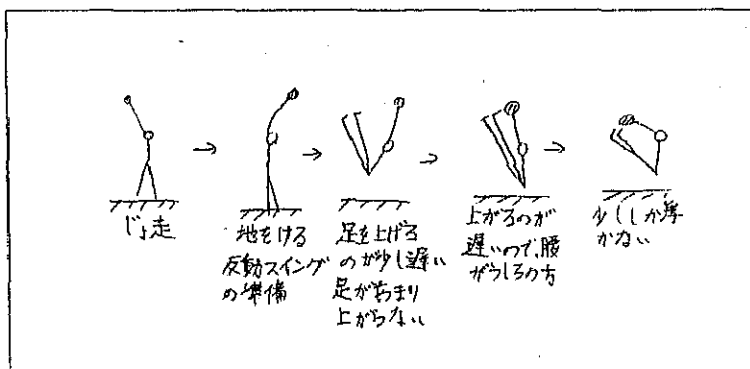 じょ走
地をける
反動スイング
の準備
足を上げる
のが少し遅い
足があまり
上がらない
上がるのが
遅いので、腰
がうしろの方
少ししか浮
かない